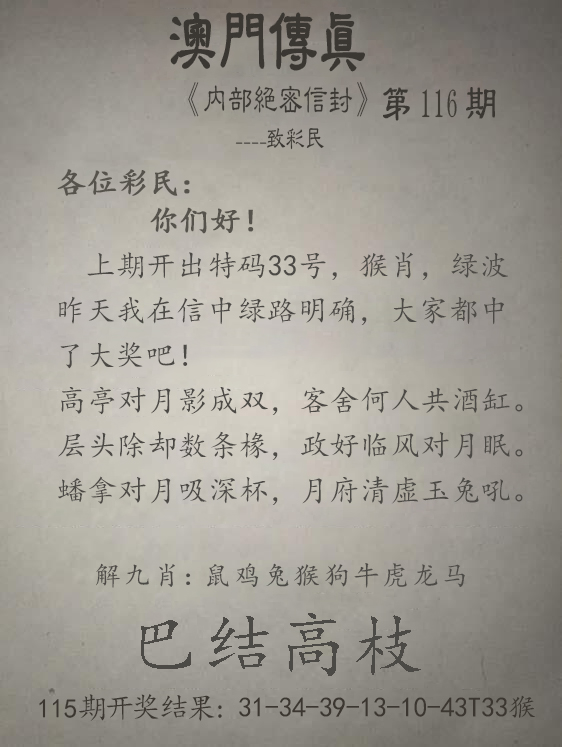 澳門傳真
《内部絕密信封》第116期
----致彩民
各位彩民：
你们好！
上期开出特码33号，猴肖，绿波
昨天我在信中绿路明确，大家都中
了大奖吧！
高亭对月影成双，客舍何人共酒缸。
层头除却数条椽，政好临风对月眠。
蟠拿对月吸深杯，月府清虚玉兔吼。
解九肖：鼠鸡兔猴狗牛虎龙马
巴结高枝
115期开奖结果：31-34-39-13-10-43T33猴